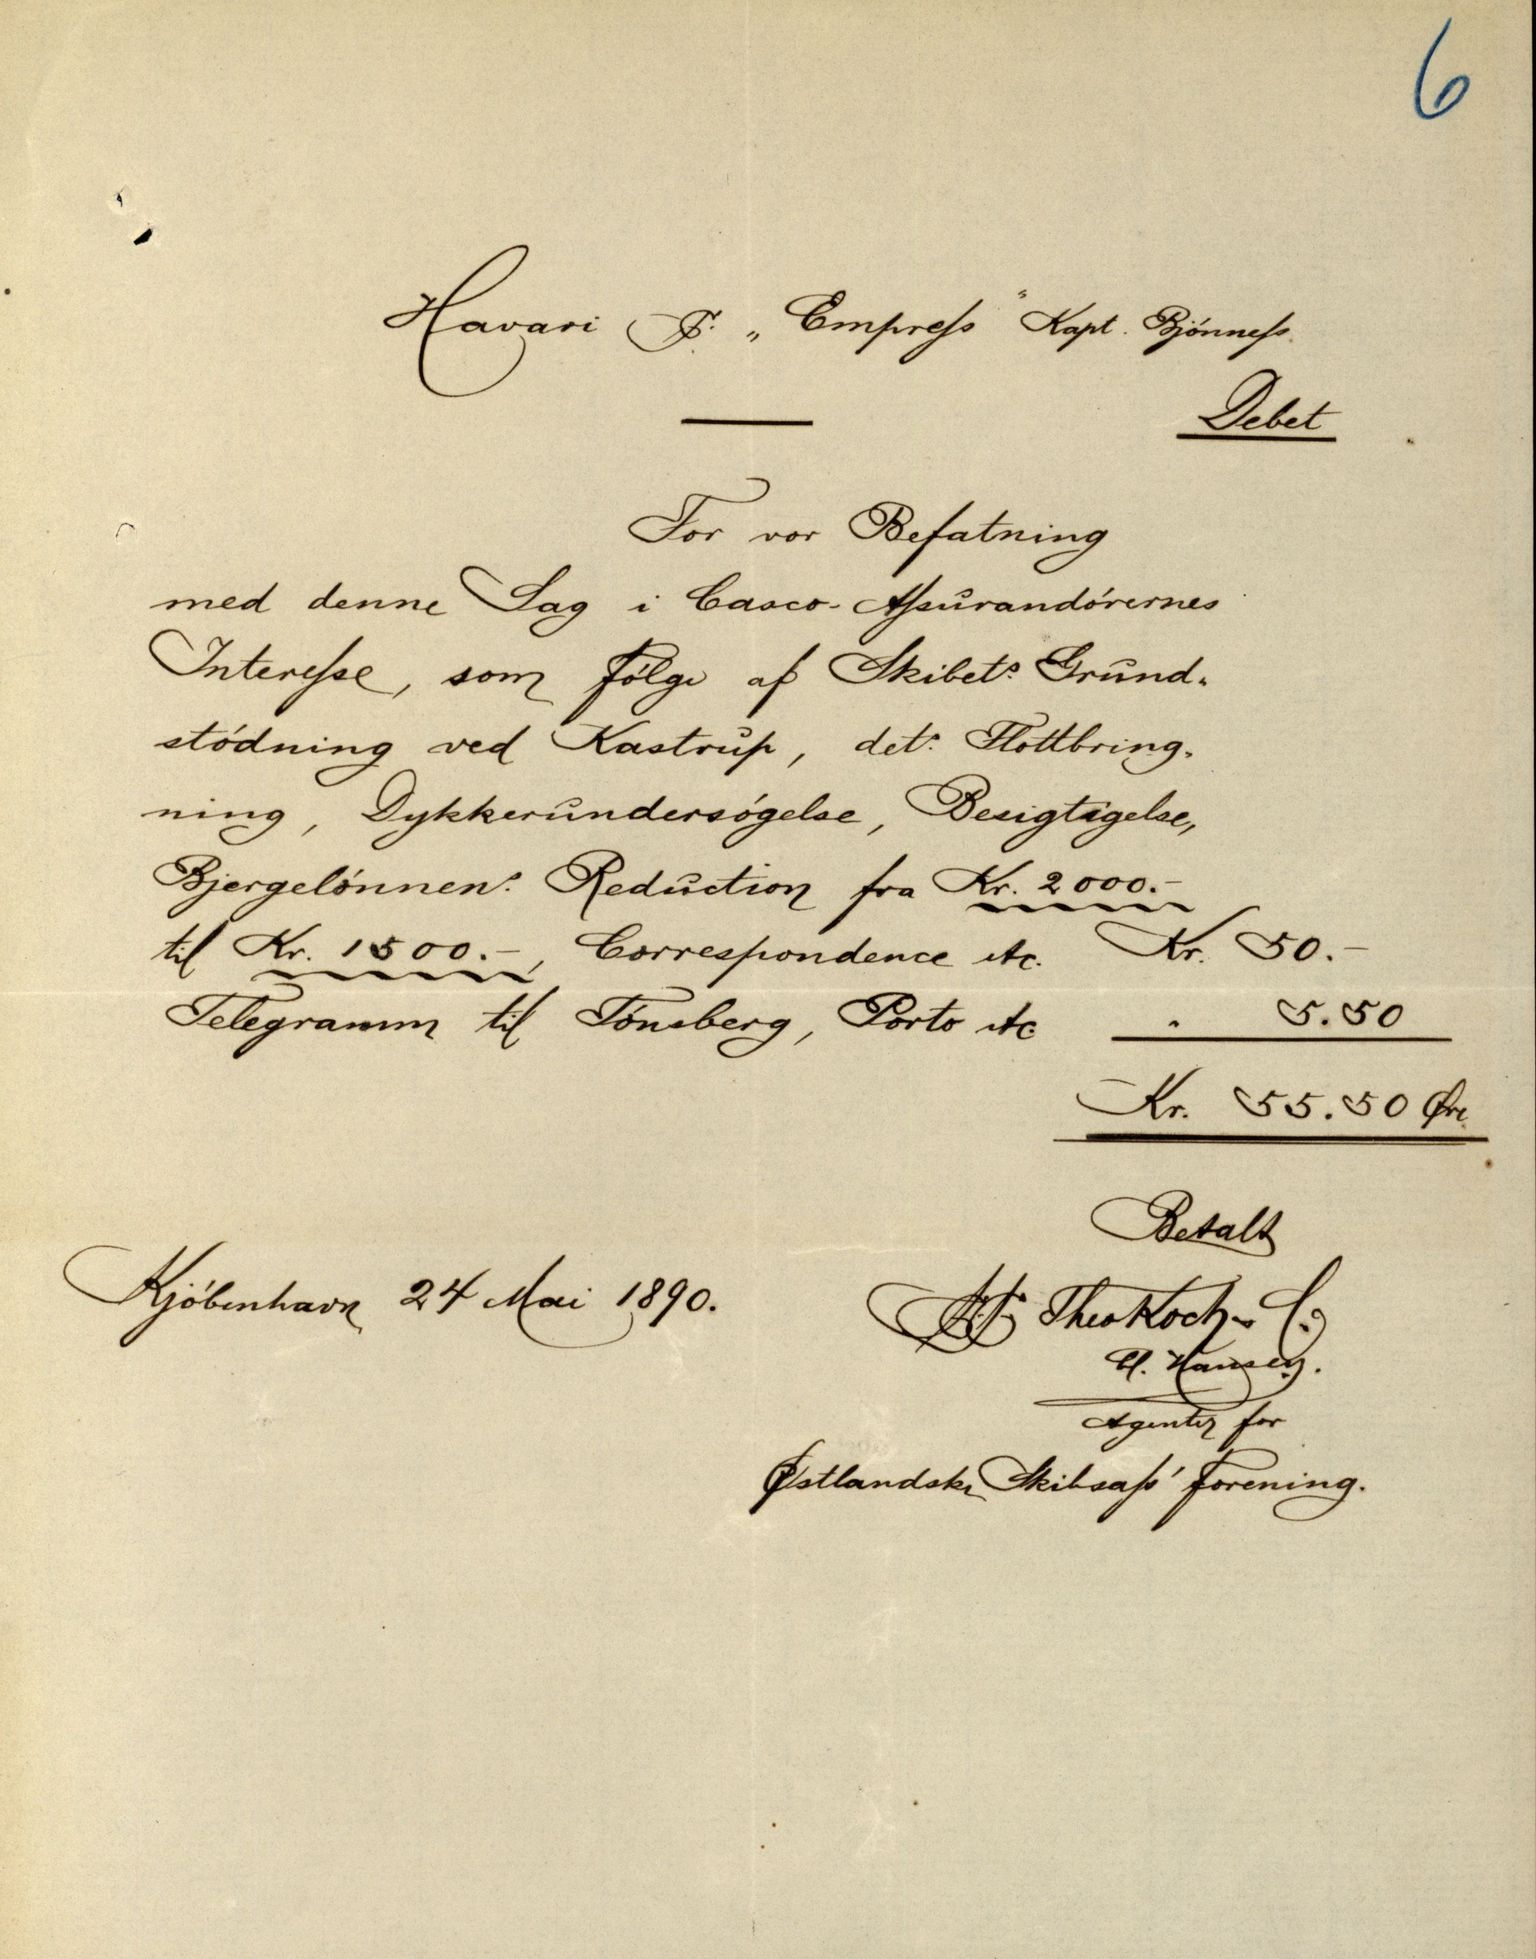 6
Havari F. „Empress" Kapt. Bjönness.
Debet
For vor Befatning
med denne Sag i Casco-Assurandörernes
Interesse, som Fölge af Skibets Grund-
stödning ved Kastrup, dets Flottbring-
ning, Dykkerundersögelse, Besigtigelse,
Bjergelönnens Reduction fra Kr. 2000.-
til Kr. 1500.-, Correspondence etc. Kr. 50.-
Telegramm til Tönsberg, Porto etc. " 5.50
Kr. 55.50 Øre
Betalt
Kjöbenhavn 24 Mai 1890.
Theo Koch & C.
Hansen.
Agenter for
Østlandske Skibsass' Forening.